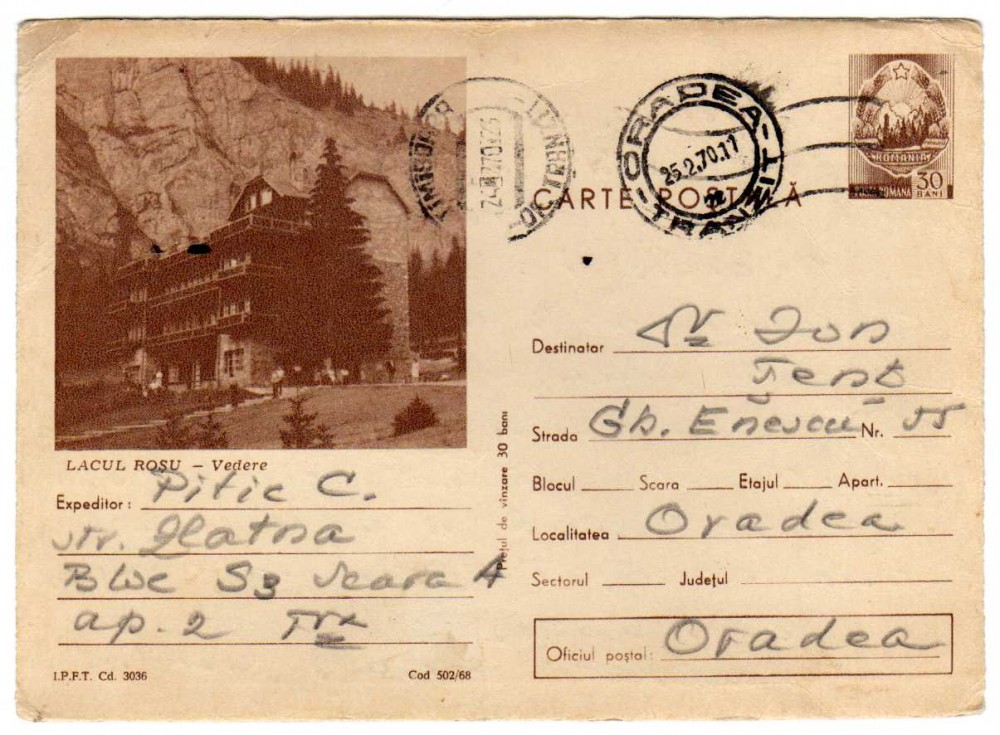 ROMANIA
POSTA ROMANA 30 BANI
ORADEA
25.2.70.17
TRANZIT
CARTE POȘTALĂ
LACUL ROȘU – Vedere
Expeditor: Pitic C.
str. Zlatna
Bloc S3 scara A
ap. 2
I.P.F.T. Cd. 3036
Cod 502/68
Prețul de vînzare 30 bani
Destinatar Ion
Strada Gh. Enescu Nr.
Blocul Scara Etajul Apart.
Localitatea Oradea
Sectorul Județul
Oficiul poștal: Oradea